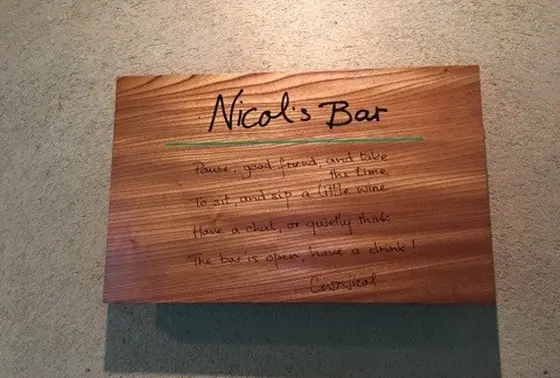 Nicol's Bar
Pause, good friend, and take
the time
To sit, and sip a little wine
Have a chat, or quietly think
The bar is open, have a drink!